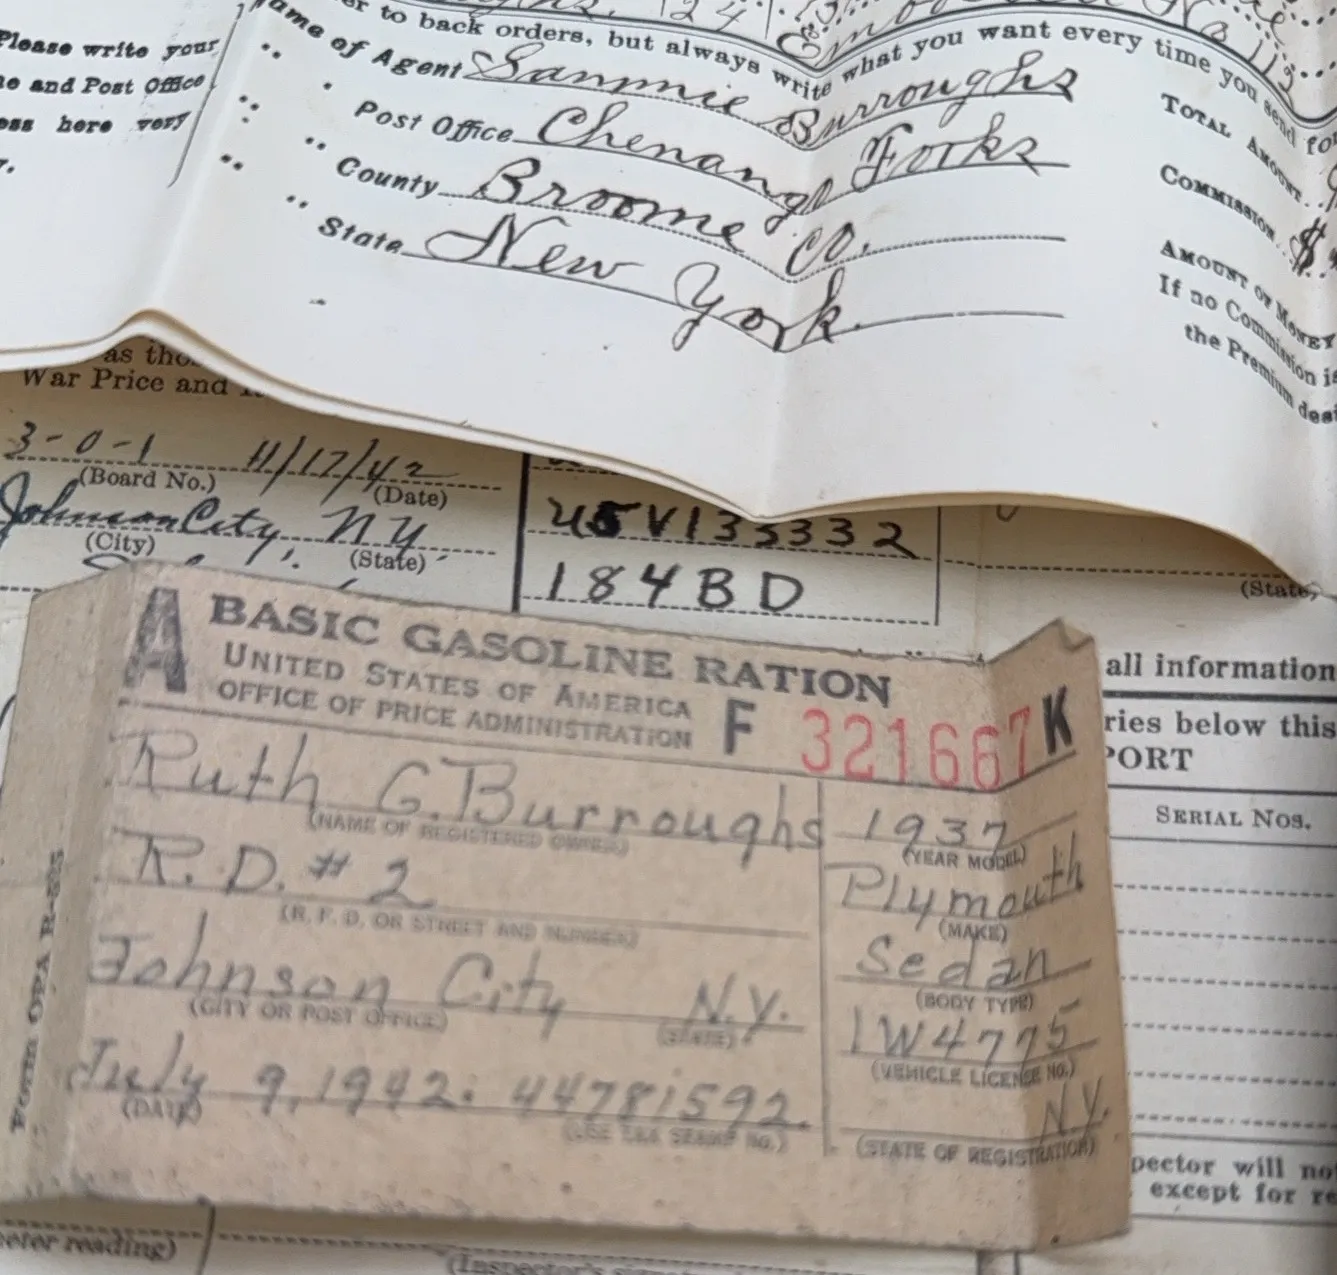 to back orders, but always write what you want every time you send
Please write your
and Post Office
here very
Name of Agent Sammie Burroughs
Post Office Chenango Forks
County Broome Co.
State New York.
TOTAL AMOUNT
COMMISSION $
AMOUNT OF MONEY
If no Commission is
the Premium
as
War Price and
3-0-1 11/17/42
(Board No.) (Date)
Johnson City, NY
(City) (State)
184BD
(State)
A BASIC GASOLINE RATION
UNITED STATES OF AMERICA
OFFICE OF PRICE ADMINISTRATION F 321667 K
Ruth G. Burroughs
(NAME OF REGISTERED OWNER)
R. D. # 2
(R. F. D. OR STREET AND NUMBER)
Johnson City N.Y.
(CITY OR POST OFFICE) (STATE)
July 9, 1942. 44781592.
(DATE) (USE TAX STAMP NO.)
1937
(YEAR MODEL)
Plymouth
(MAKE)
Sedan
(BODY TYPE)
1W4775
(VEHICLE LICENSE NO.)
N.Y.
(STATE OF REGISTRATION)
FORM OPA R-525
all information
ries below this
PORT
SERIAL NOS.
pector will
except for
reading)
(Inspector's